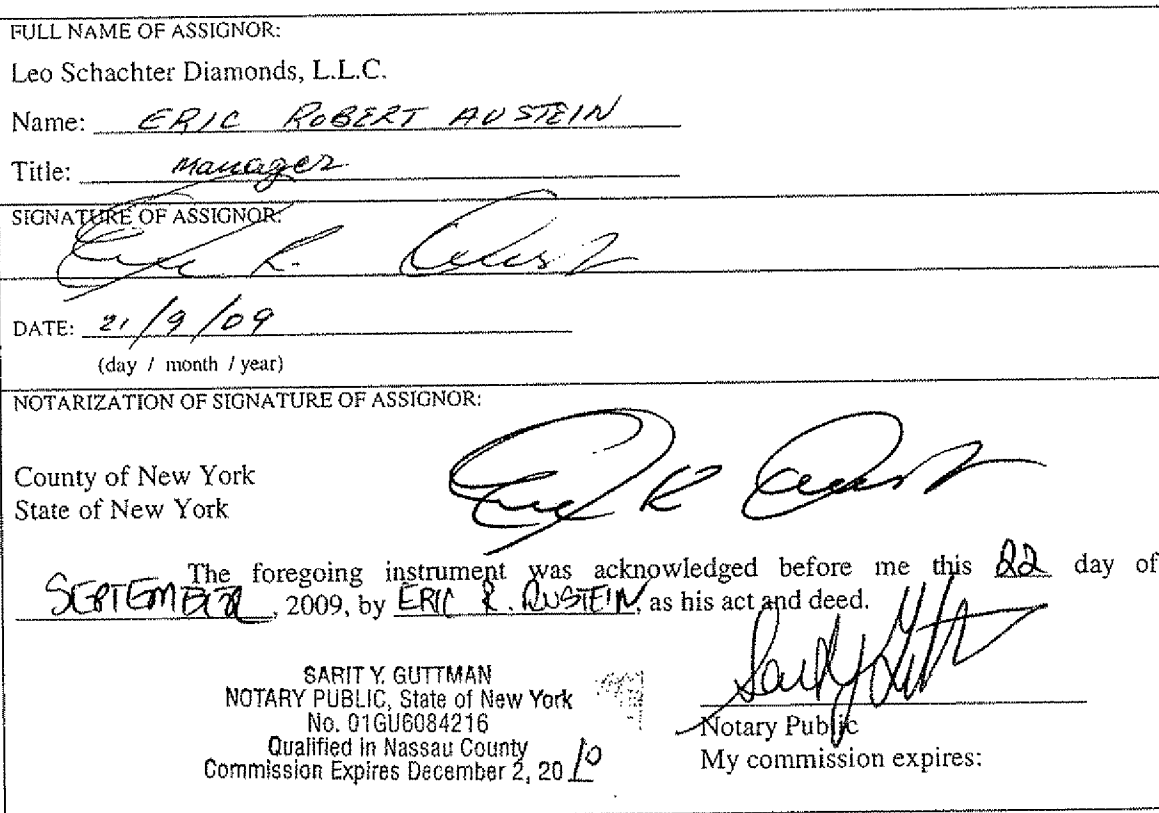 FULL NAME OF ASSIGNOR:
Leo Schachter Diamonds, L.L.C.
Name: ERIC ROBERT AUSTEIN
Title: Manager
SIGNATURE OF ASSIGNOR:
DATE: 21/9/09
(day / month / year)
NOTARIZATION OF SIGNATURE OF ASSIGNOR:
County of New York
State of New York
The foregoing instrument was acknowledged before me this 22 day of
SEPTEMBER, 2009, by ERIC R. AUSTEIN, as his act and deed.
SARIT Y. GUTTMAN
NOTARY PUBLIC, State of New York
No. 01GU6084216
Qualified in Nassau County
Commission Expires December 2, 2010
Notary Public
My commission expires: